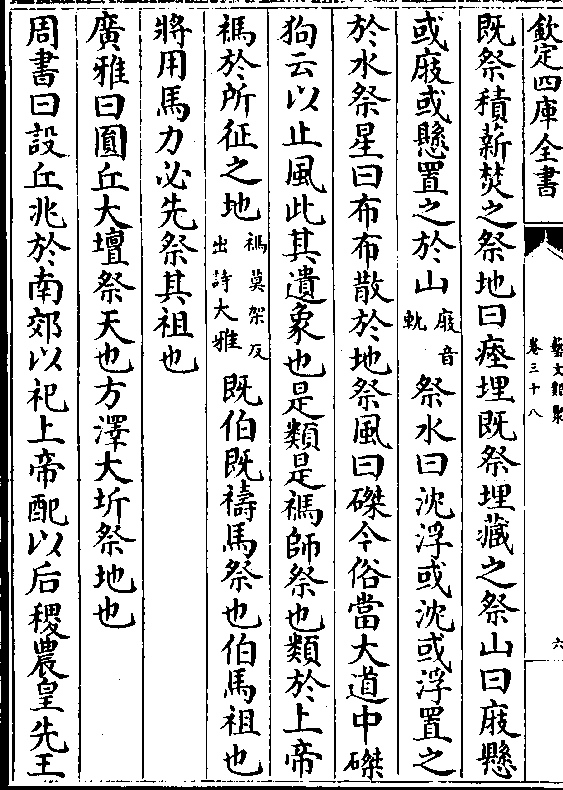 欽定四庫全書
藝文類聚
卷三十八
六
既祭積薪焚之祭地曰瘞埋既祭埋藏之祭山曰庪懸
或庪或懸置之於山庪音軌祭水曰沈浮或沈或浮置之
於水祭星曰布布散於地祭風曰磔今俗當大道中磔
狗云以止風此其遺象也是類是禡師祭也類於上帝
禡於所征之地禡莫架反出詩大雅既伯既禱馬祭也伯馬祖也
將用馬力必先祭其祖也
廣雅曰圓丘大壇祭天也方澤大圻祭地也
周書曰設丘兆於南郊以祀上帝配以后稷農皇先王